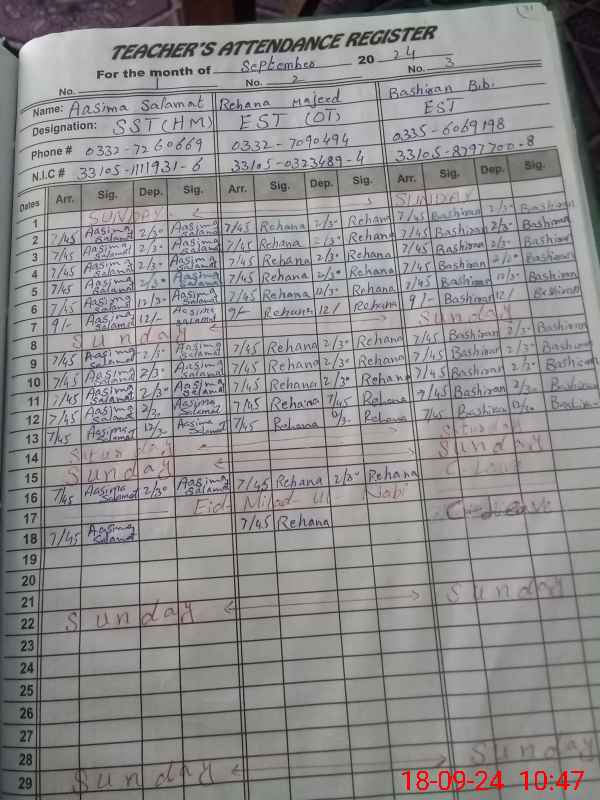 TEACHER'S ATTENDANCE REGISTER
For the month of September 2024
No. 1 No. 2 No. 3
Name: Aasima Salamat Rehana Majeed Bashiran Bibi
Designation: SST (HM) EST (OT) EST
Phone # 0332-7260669 0332-7090494 0335-6069198
N.I.C # 33105-1111931-6 33105-0323489-4 33105-8797700-8
Dates Arr. Sig. Dep. Sig. Arr. Sig. Dep. Sig. Arr. Sig. Dep. Sig.
1 SUNDAY SUNDAY
2 7/45 Aasima Salamat 2/30 Aasima Salamat 7/45 Rehana 2/30 Rehana 7/45 Bashiran 2/30 Bashiran
3 7/45 Aasima Salamat 2/30 Aasima Salamat 7/45 Rehana 2/30 Rehana 7/45 Bashiran 2/30 Bashiran
4 7/45 Aasima Salamat 2/30 Aasima Salamat 7/45 Rehana 2/30 Rehana 7/45 Bashiran 2/30 Bashiran
5 7/45 Aasima Salamat 2/30 Aasima Salamat 7/45 Rehana 2/30 Rehana 7/45 Bashiran 2/30 Bashiran
6 7/45 Aasima Salamat 12/30 Aasima Salamat 7/45 Rehana 12/30 Rehana 7/45 Bashiran 12/30 Bashiran
7 9/- Aasima Salamat 12/- Aasima Salamat 9/- Rehana 12/ Rehana 9/- Bashiran 12/ Bashiran
8 Sunday Sunday
9 7/45 Aasima Salamat 2/30 Aasima Salamat 7/45 Rehana 2/30 Rehana 7/45 Bashiran 2/30 Bashiran
10 7/45 Aasima Salamat 2/30 Aasima Salamat 7/45 Rehana 2/30 Rehana 7/45 Bashiran 2/30 Bashiran
11 7/45 Aasima Salamat 2/30 Aasima Salamat 7/45 Rehana 2/30 Rehana 7/45 Bashiran 2/30 Bashiran
12 7/45 Aasima Salamat 2/30 Aasima Salamat 7/45 Rehana 7/45 Rehana 7/45 Bashiran 2/30 Bashiran
13 7/45 Aasima Salamat 12/30 Aasima Salamat 7/45 Rehana Rehana 7/45 Bashiran 12/30 Bashiran
14 Saturday Saturday
15 Sunday Sunday
16 7/45 Aasima Salamat 2/30 Aasima Salamat 7/45 Rehana 2/30 Rehana C-Leave
17 Eid- Milad- Ul- Nabi
18 7/45 Aasima Salamat 7/45 Rehana C-Leave
19
20
21
22 Sunday Sunday
23
24
25
26
27
28
29 Sunday Sunday
18-09-24 10:47